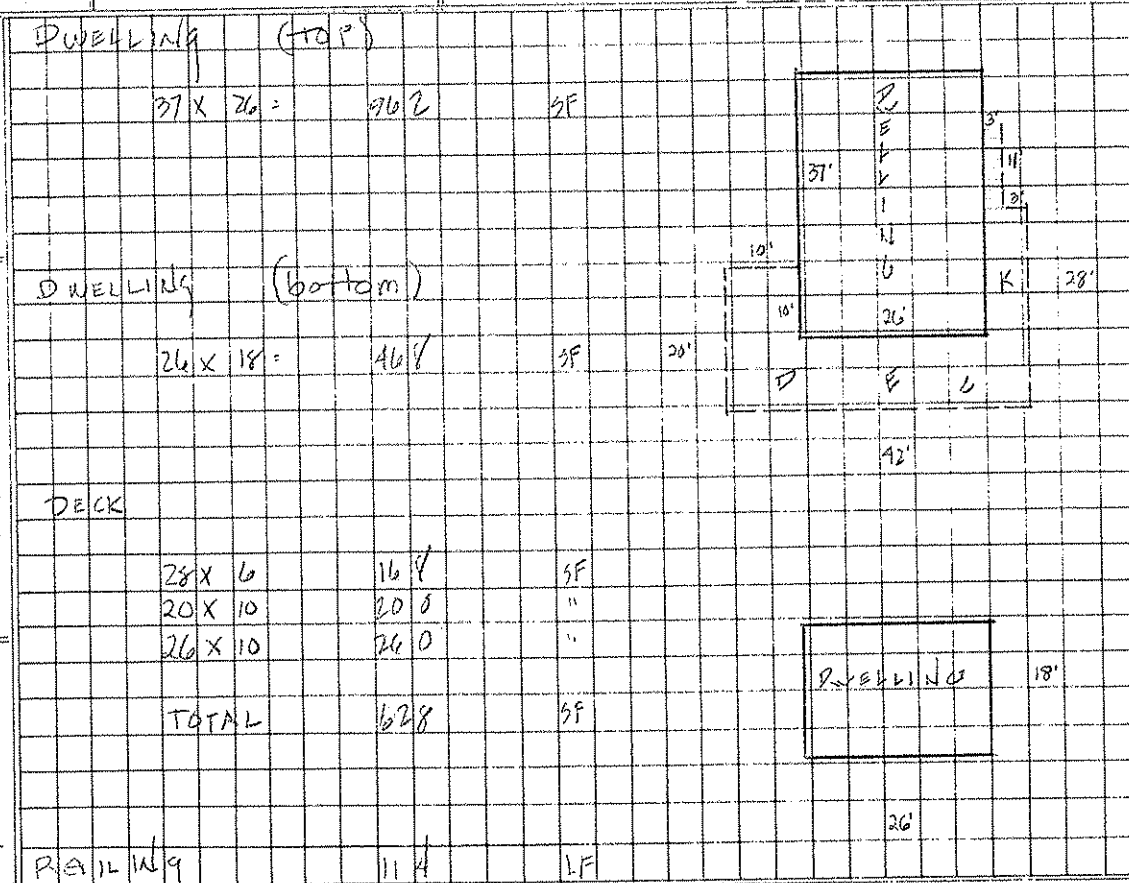 DWELLING (TOP)
37 X 26 = 962 SF
DWELLING (bottom)
26 X 18 = 468 SF
DECK
28 X 6 168 SF
20 X 10 200 "
26 X 10 260 "
TOTAL 628 SF
RAILING 114 LF
DWELLING
37'
26'
3'
11'
3'
10'
10'
20'
28'
DECK
42'
DWELLING
18'
26'